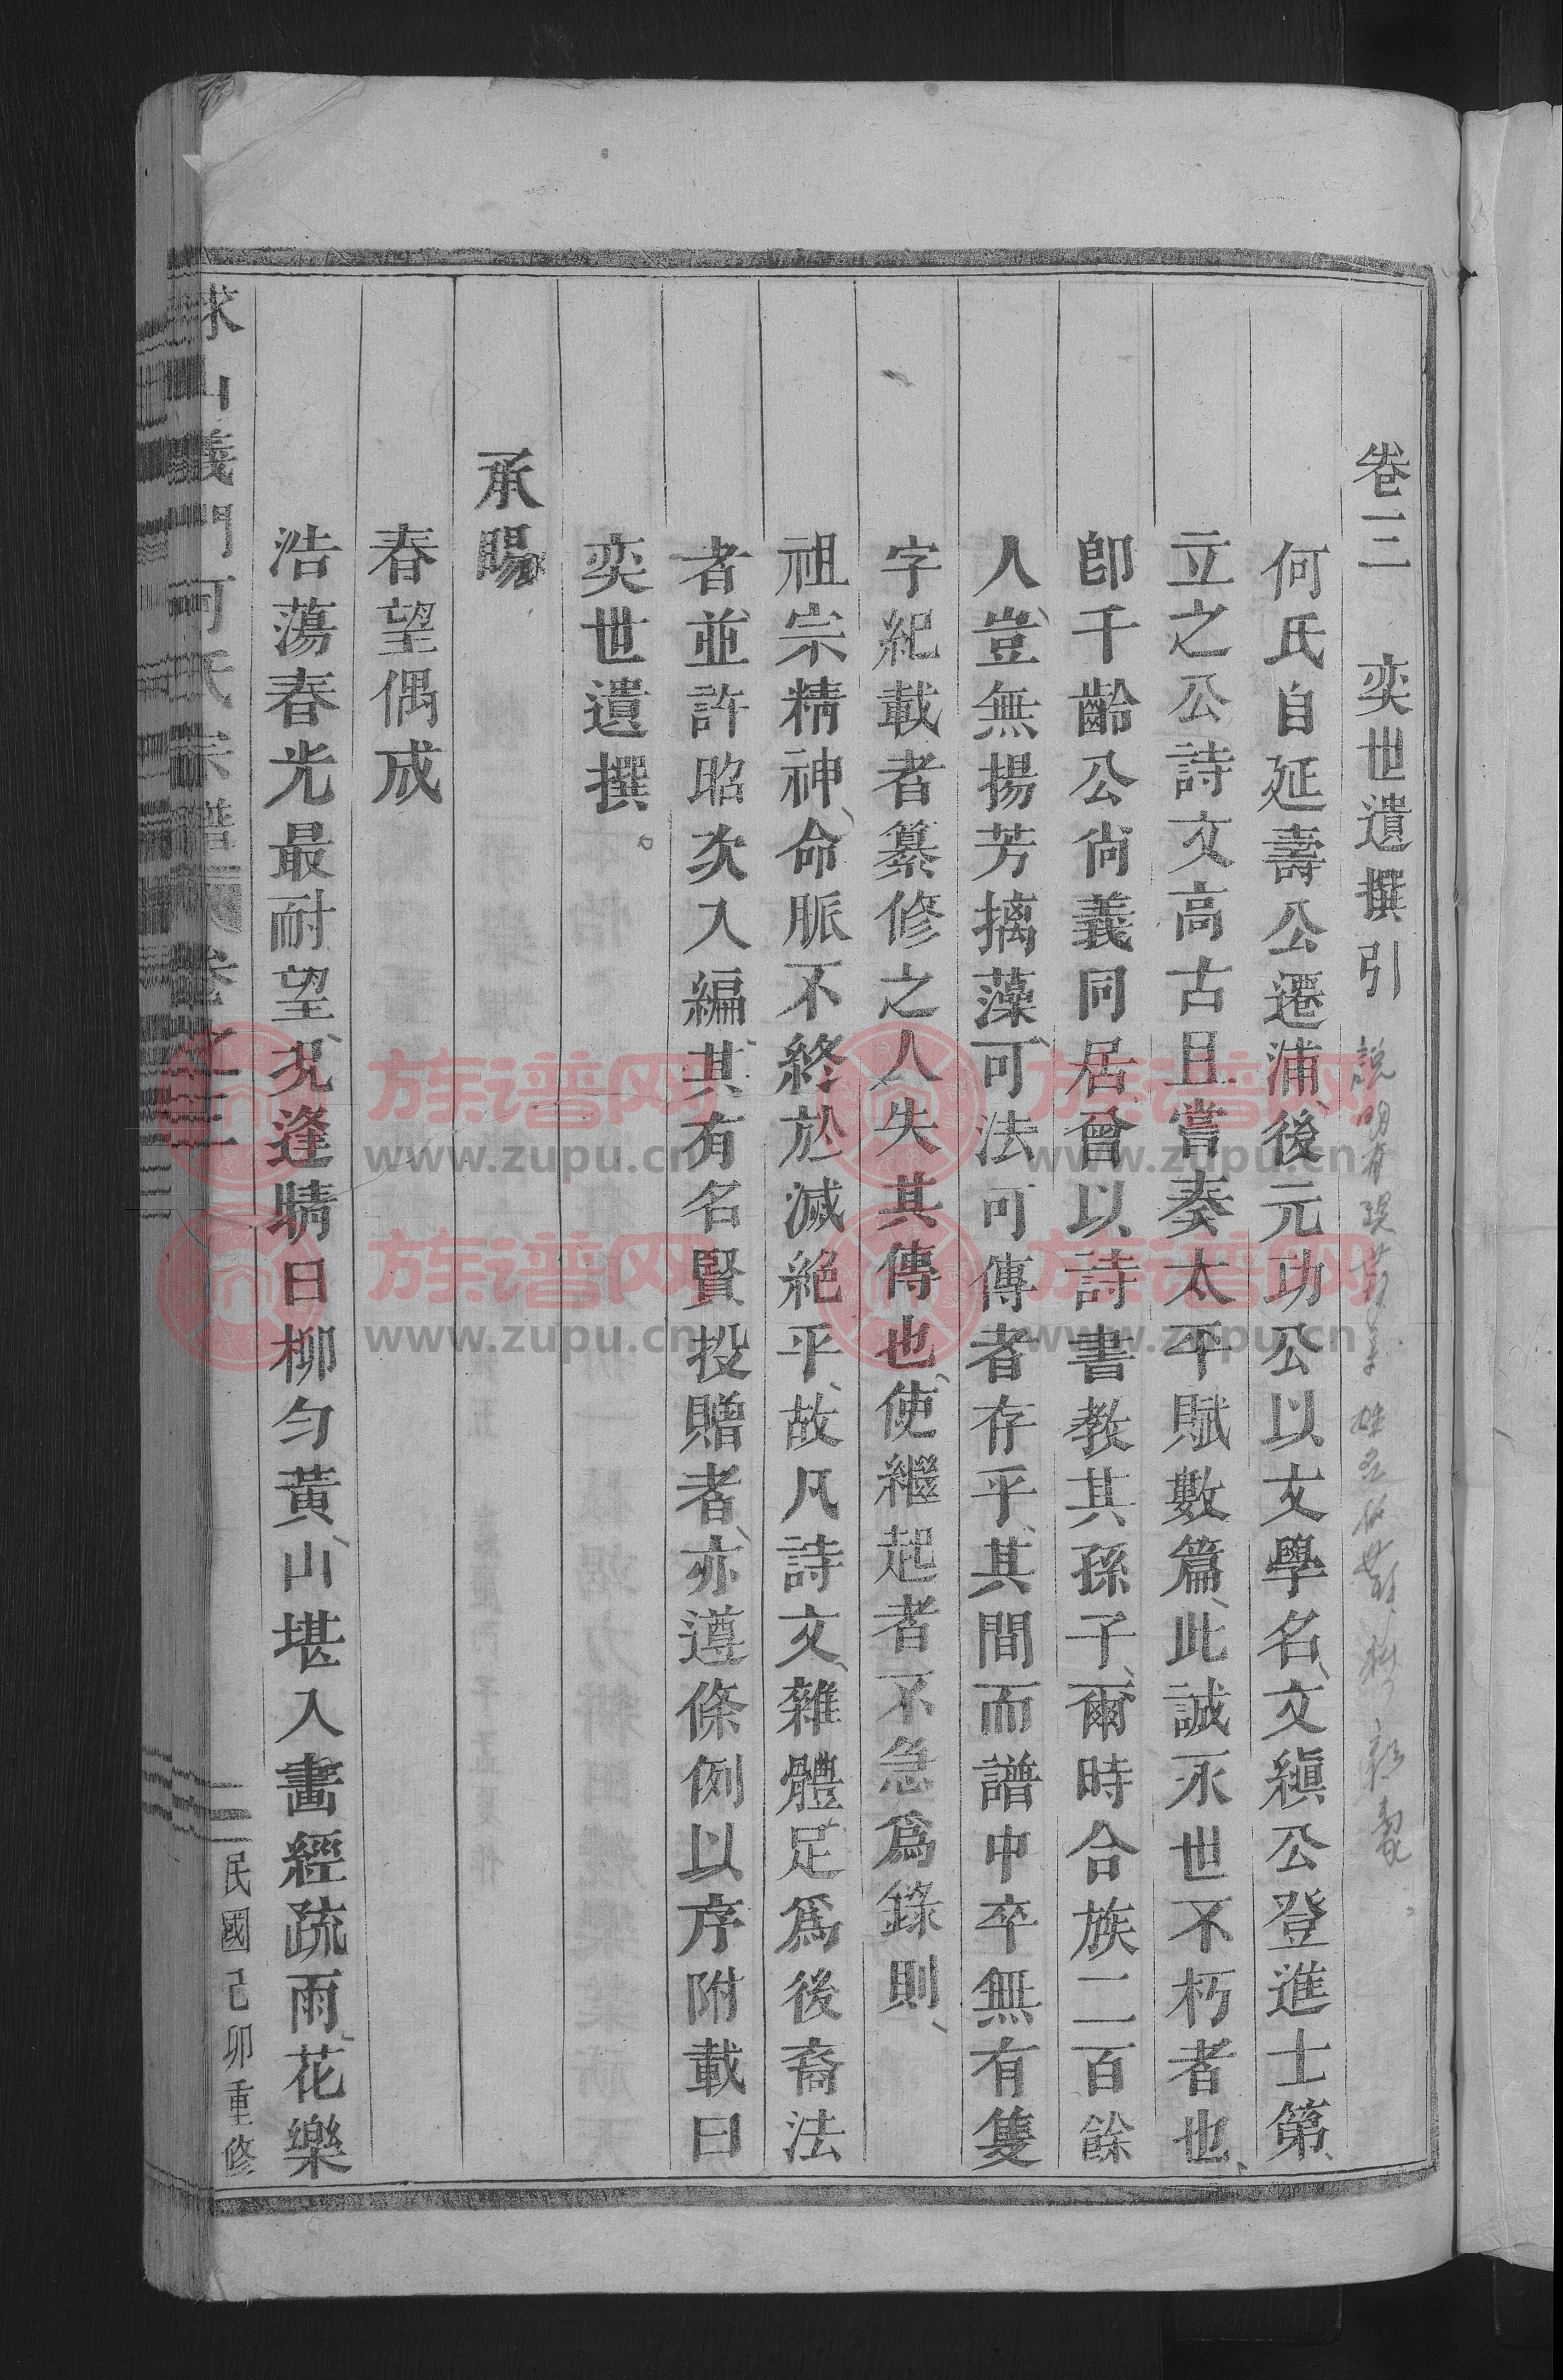 卷三　奕世遺撰引
何氏自延壽公遷浦後元功公以文學名文縝公登進士第
立之公詩文高古且嘗奏太平賦數篇此誠永世不朽者也
卽千齡公尙義同居曾以詩書教其孫子爾時合族二百餘
人豈無揚芳摛藻可法可傳者存乎其間而譜中卒無有隻
字紀載者纂修之人失其傳也使繼起者不急爲錄則
祖宗精神命脈不終於滅絕乎故凡詩文雜體足爲後裔法
者並許昭次入編其有名賢投贈者亦遵條例以序附載曰
奕世遺撰。
承暘
春望偶成
浩蕩春光最耐望況逢晴日柳勻黃山堪入畫經疏雨花樂
求山義門何氏宗譜　卷之三　三　民國己卯重修
族谱网
www.zupu.cn
族谱网
www.zupu.cn
族谱网
www.zupu.cn
族谱网
www.zupu.cn